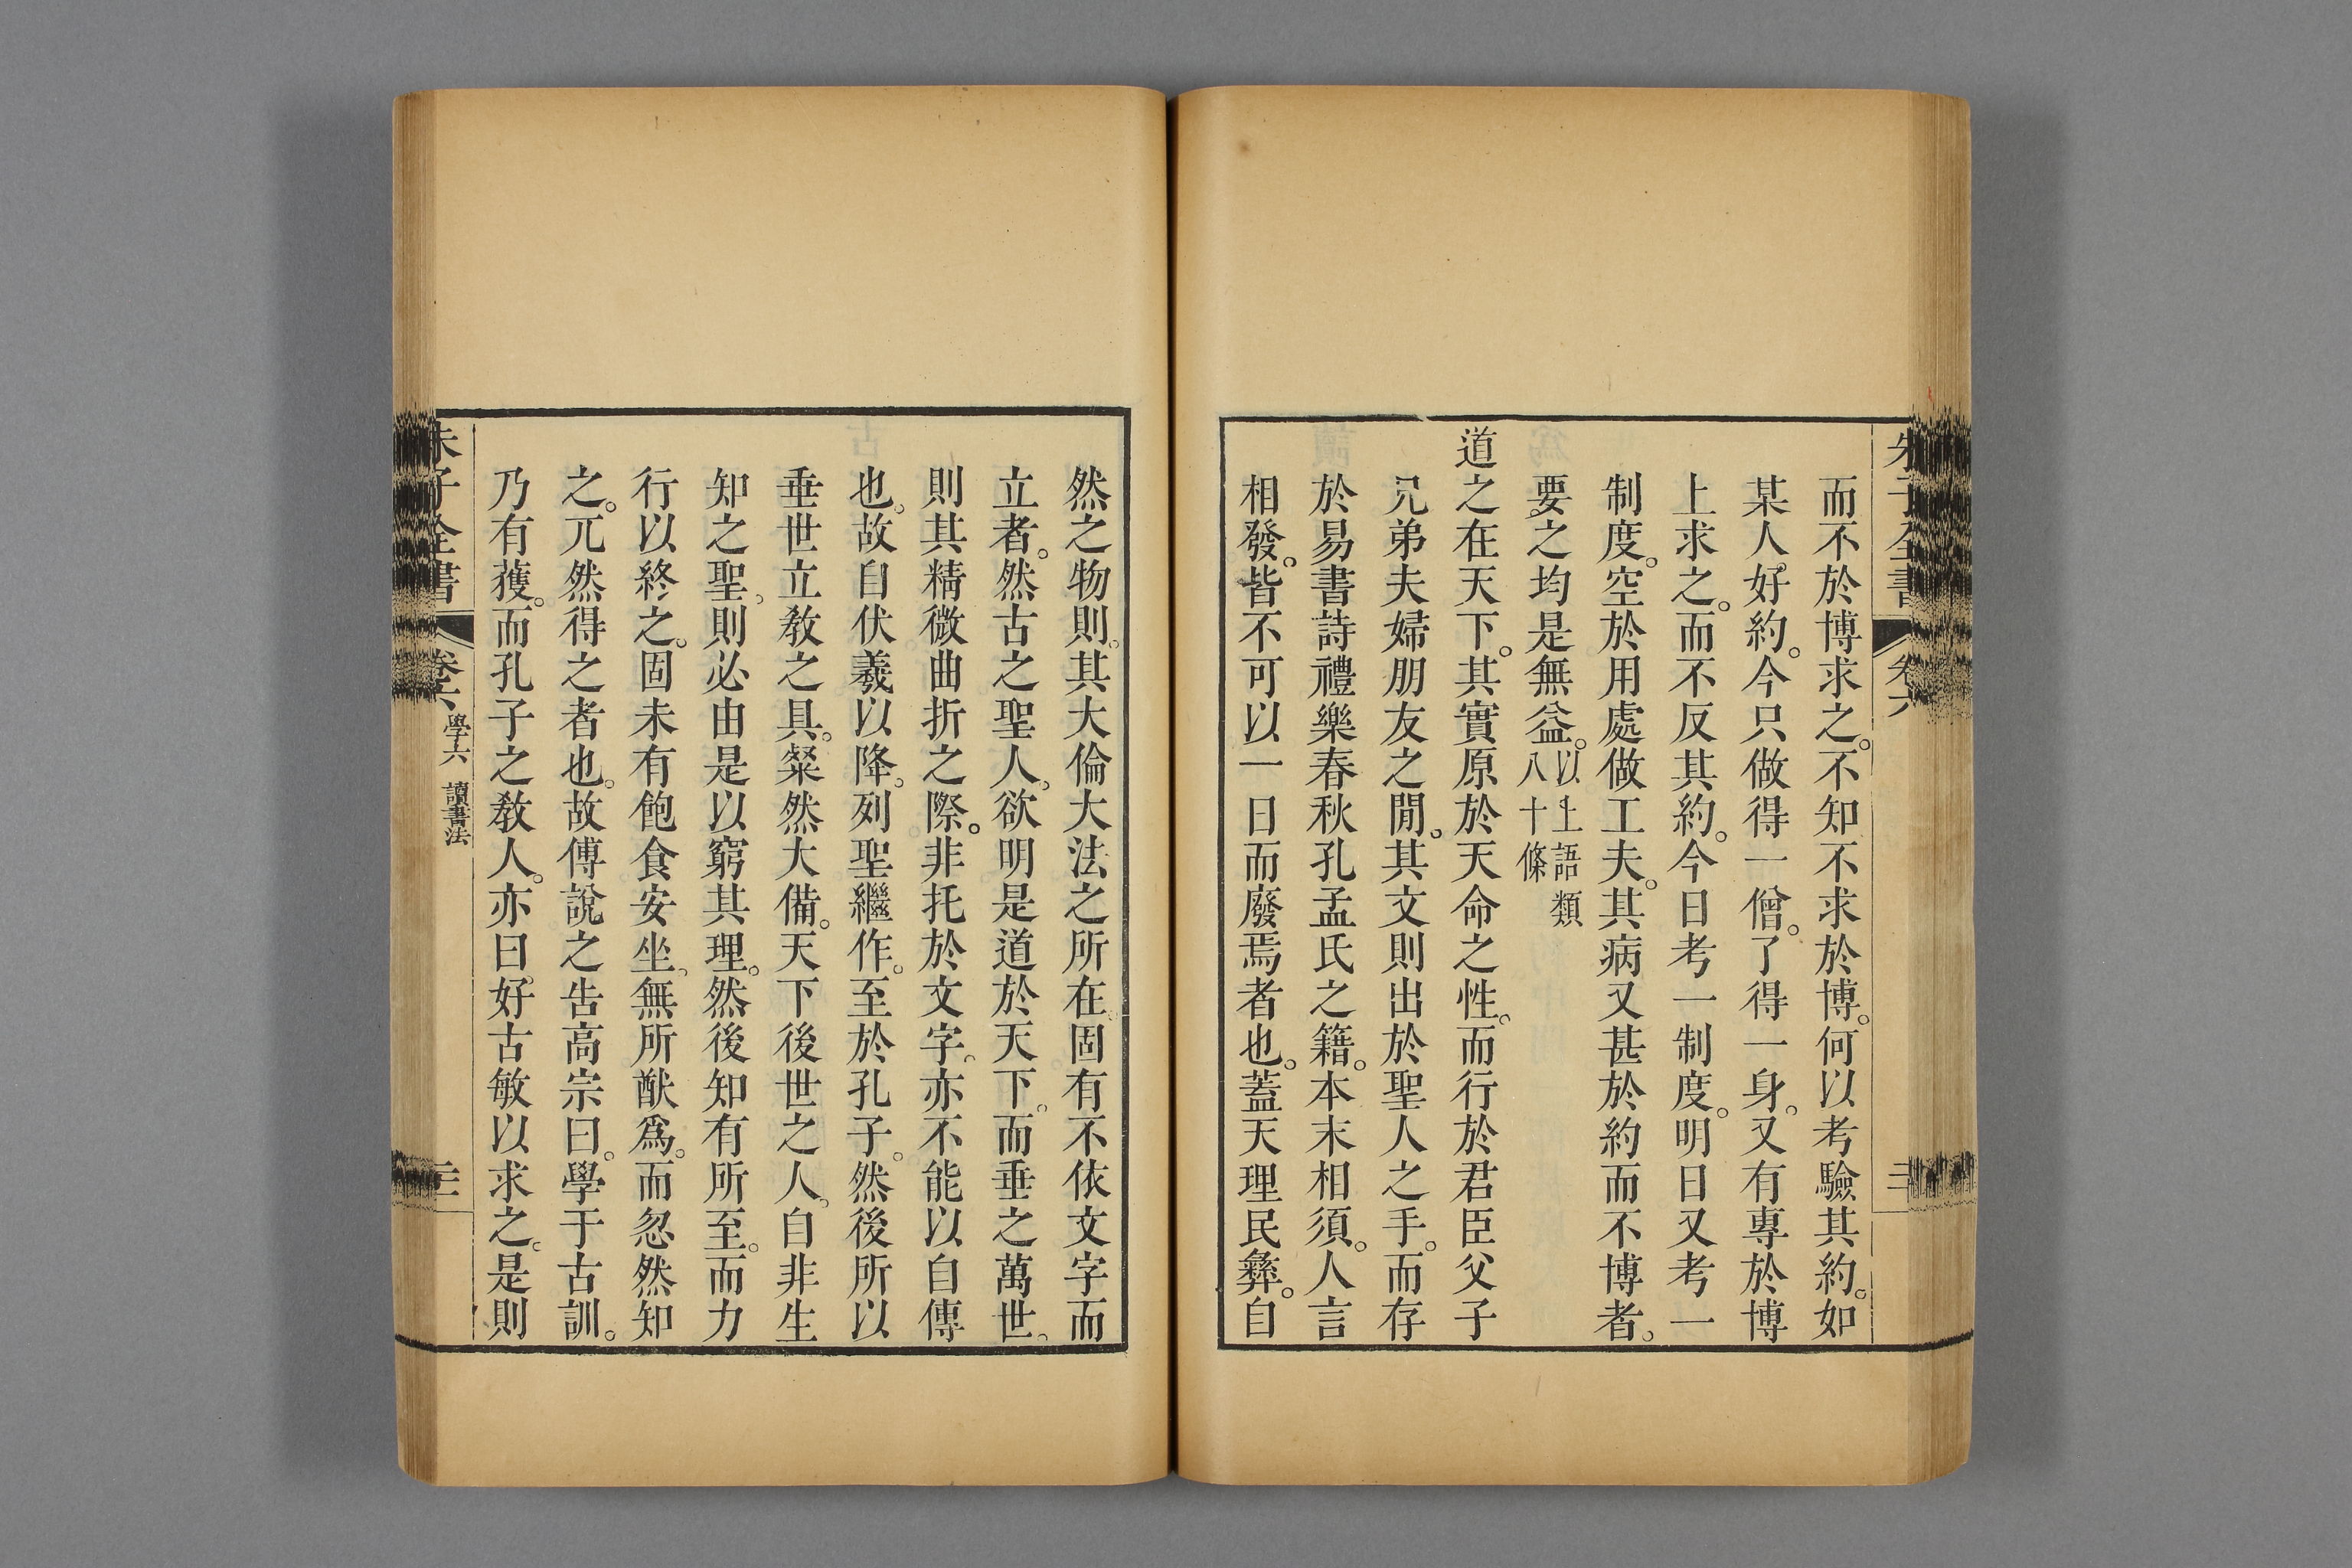 而不於博求之。不知不求於博。何以考驗其約。如
某人。好約。今只做得一僧。了得一身。又有專於博
上求之。而不反其約。今日考一制度。明日又考一
制度。空於用處做工夫。其病又甚於約而不博者。
要之均是無益。以上語類
八十條
道之在天下。其實原於天命之性。而行於君臣父子
兄弟夫婦朋友之閒。其文則出於聖人之手。而存
於易書詩禮樂春秋孔孟氏之籍。本末相須。人言
相發。皆不可以一日而廢焉者也。蓋天理民彝。自
然之物則。其大倫大法之所在。固有不依文字而
立者。然古之聖人。欲明是道於天下。而垂之萬世。
則其精微曲折之際。非托於文字。亦不能以自傳
也。故自伏羲以降。列聖繼作。至於孔子。然後所以
垂世立敎之具。粲然大備。天下後世之人。自非生
知之聖。則必由是以窮其理。然後知有所至。而力
行以終之。固未有飽食安坐。無所猷爲。而忽然知
之。兀然得之者也。故傅說之告高宗曰。學于古訓。
乃有獲。而孔子之敎人。亦曰。好古敏以求之。是則
朱子全書
卷六
學六 讀書法